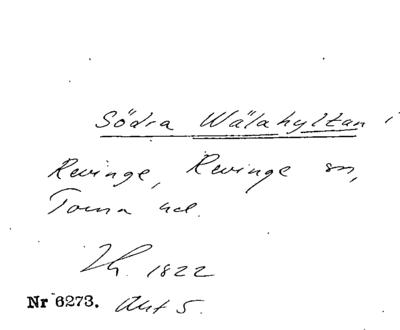 Södra Wälahyltan i
Revinge, Revinge sn,
Torna hd.
Th. 1822
Nr 6273. Akt 5.